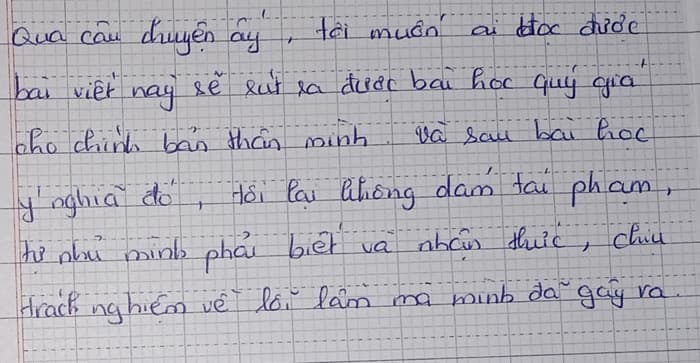 Qua câu chuyện ấy, tôi muốn ai đọc được
bài viết này sẽ rút ra được bài học quý giá
cho chính bản thân mình. Và sau bài học
ý nghĩa đó, tôi lại không dám tái phạm,
tự nhủ mình phải biết và nhận thức, chịu
trách nghiệm về lỗi lầm mà mình đã gây ra.